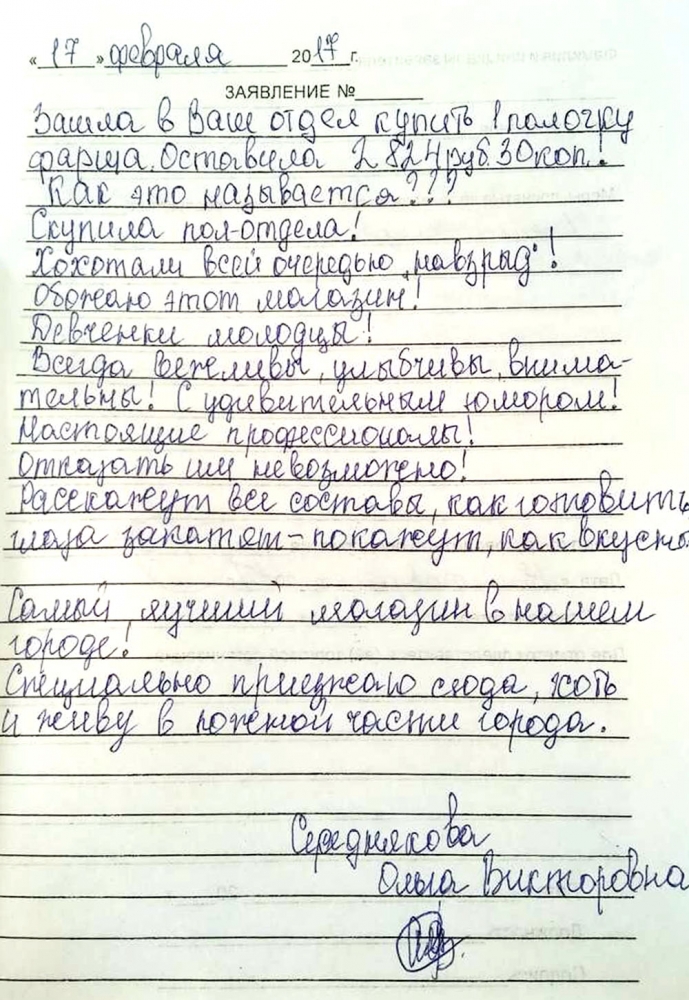 « 17 » февраля 2017 г.
ЗАЯВЛЕНИЕ №
Зашла в Ваш отдел купить 1 палочку
фарша. Оставила 2 824 руб. 30 коп!
Как это называется???
Скупила пол-отдела!
Хохотали всей очередью „навзрыд"!
Обожаю этот магазин!
Девченки молодцы!
Всегда вежливы, улыбчивы, внима-
тельны! С удивительным юмором!
Настоящие профессионалы!
Отказать им невозможно!
Расскажут все составы, как готовить
глаза закатят - покажут, как вкусно.
Самый лучший магазин в нашем
городе!
Специально приезжаю сюда, хоть
и живу в южной части города.
Середнякова
Ольга Викторовна